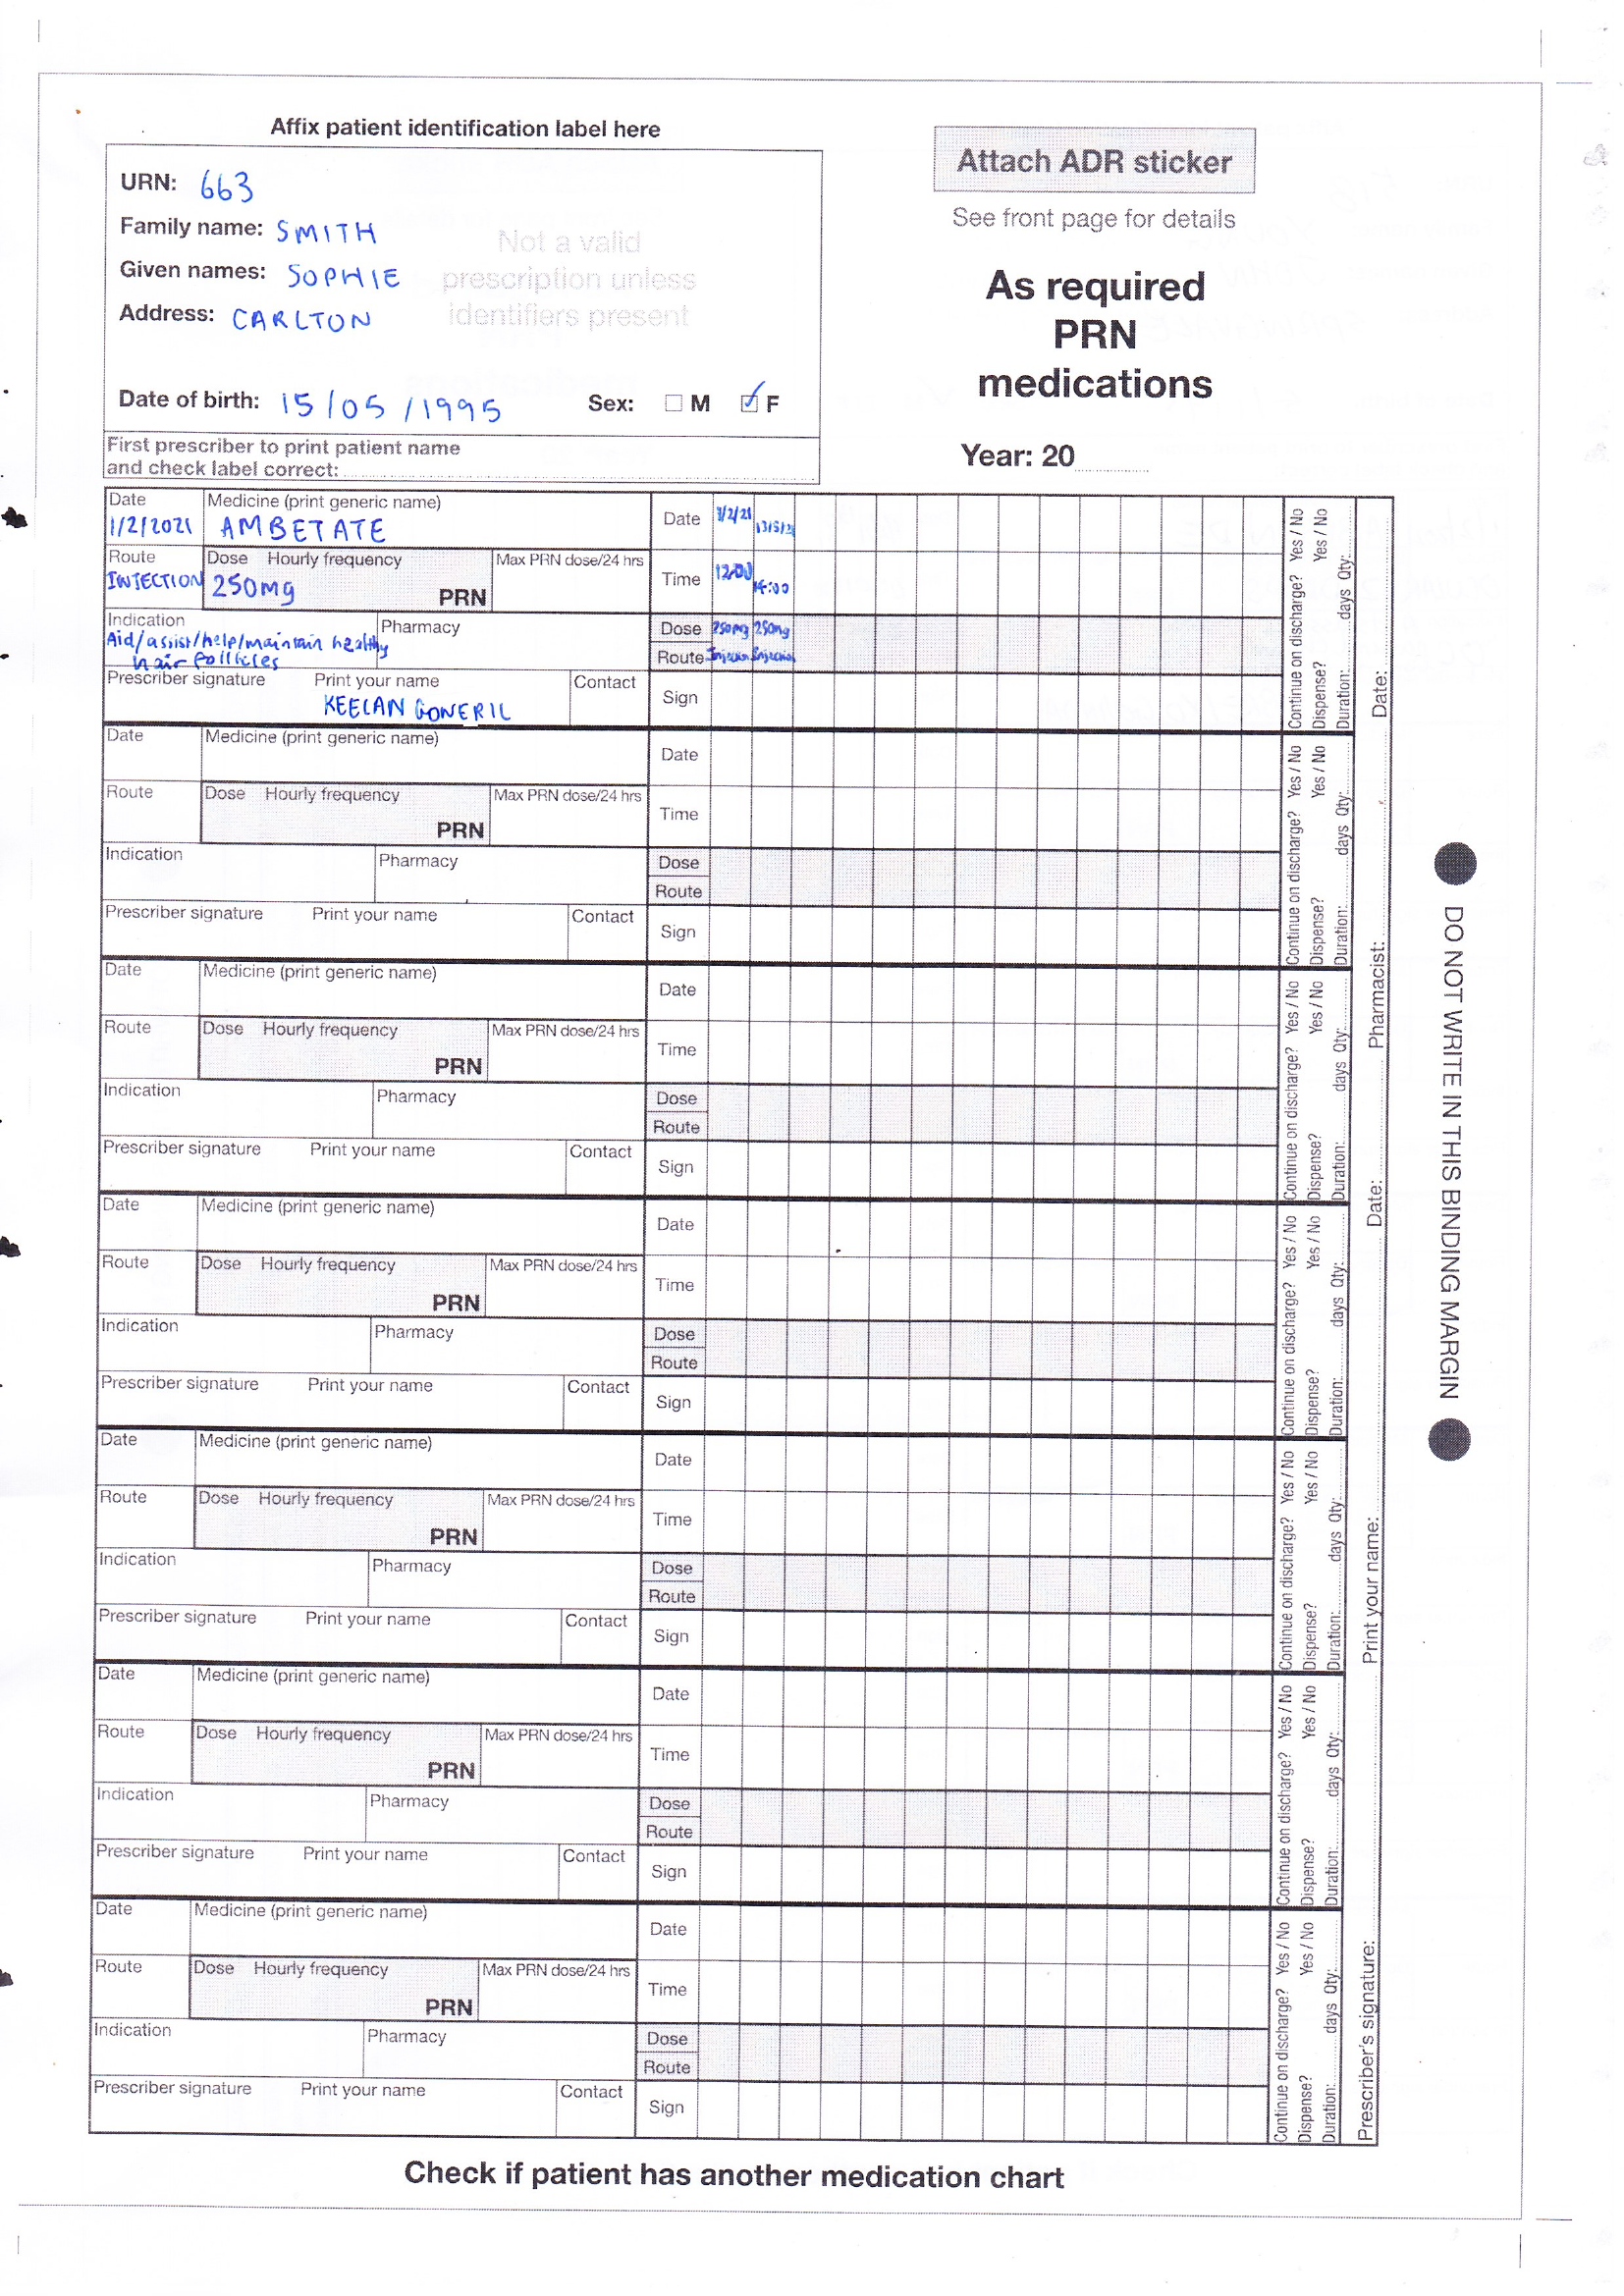 Affix patient identification label here
URN: 663
Family name: SMITH
Given names: SOPHIE
Address: CARLTON
Not a valid
prescription unless
identifiers present
Date of birth: 15/05/1995 Sex: M F
First prescriber to print patient name
and check label correct:
Attach ADR sticker
See front page for details
As required
PRN
medications
Year: 20
Date Medicine (print generic name) Date 1/2/21
1/2/2021 AMBETATE
Route Dose Hourly frequency Max PRN dose/24 hrs Time 12:00 14:00
INJECTION 250mg PRN
Indication Pharmacy Dose 250mg 250mg
Aid/assist/help/maintain healthy
hair follicles Route Injection Injection
Prescriber signature Print your name Contact Sign
KEELAN GONERIL
Continue on discharge? Yes / No
Dispense? Yes / No
Duration: days Qty:
Date Medicine (print generic name) Date
Route Dose Hourly frequency Max PRN dose/24 hrs Time
PRN
Indication Pharmacy Dose
Route
Prescriber signature Print your name Contact Sign
Continue on discharge? Yes / No
Dispense? Yes / No
Duration: days Qty:
Date Medicine (print generic name) Date
Route Dose Hourly frequency Max PRN dose/24 hrs Time
PRN
Indication Pharmacy Dose
Route
Prescriber signature Print your name Contact Sign
Continue on discharge? Yes / No
Dispense? Yes / No
Duration: days Qty:
Date Medicine (print generic name) Date
Route Dose Hourly frequency Max PRN dose/24 hrs Time
PRN
Indication Pharmacy Dose
Route
Prescriber signature Print your name Contact Sign
Continue on discharge? Yes / No
Dispense? Yes / No
Duration: days Qty:
Date Medicine (print generic name) Date
Route Dose Hourly frequency Max PRN dose/24 hrs Time
PRN
Indication Pharmacy Dose
Route
Prescriber signature Print your name Contact Sign
Continue on discharge? Yes / No
Dispense? Yes / No
Duration: days Qty:
Date Medicine (print generic name) Date
Route Dose Hourly frequency Max PRN dose/24 hrs Time
PRN
Indication Pharmacy Dose
Route
Prescriber signature Print your name Contact Sign
Continue on discharge? Yes / No
Dispense? Yes / No
Duration: days Qty:
Date Medicine (print generic name) Date
Route Dose Hourly frequency Max PRN dose/24 hrs Time
PRN
Indication Pharmacy Dose
Route
Prescriber signature Print your name Contact Sign
Continue on discharge? Yes / No
Dispense? Yes / No
Duration: days Qty:
Prescriber's signature: Print your name: Date: Pharmacist: Date:
DO NOT WRITE IN THIS BINDING MARGIN
Check if patient has another medication chart